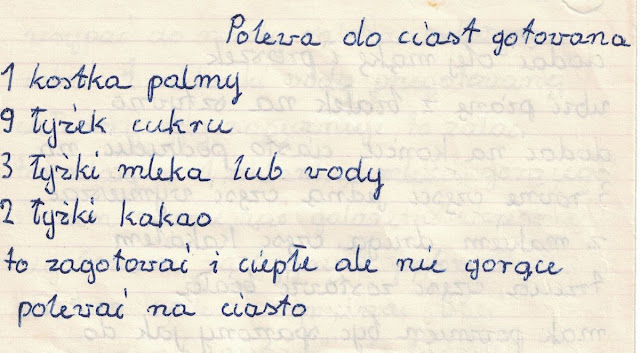 Polewa do ciast gotowana
1 kostka palmy
9 łyżek cukru
3 łyżki mleka lub wody
2 łyżki kakao
to zagotować i ciepłe ale nie gorące
polewać na ciasto